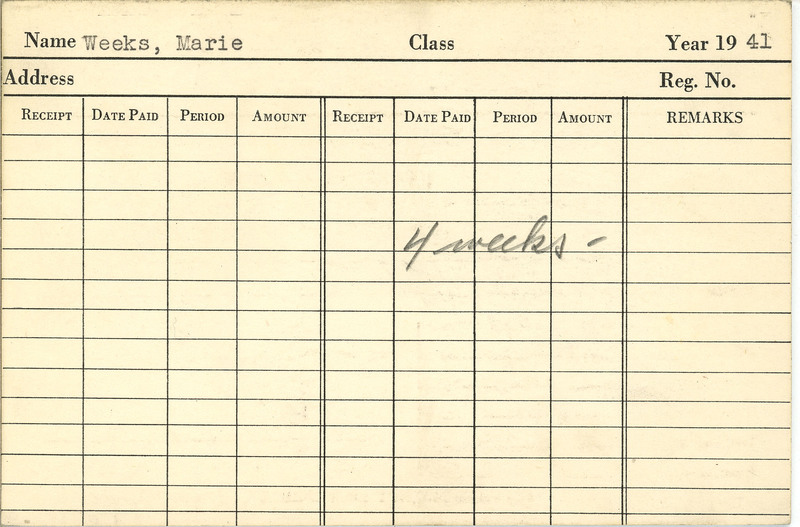 Name Weeks, Marie Class Year 19 41
Address Reg. No.
RECEIPT DATE PAID PERIOD AMOUNT RECEIPT DATE PAID PERIOD AMOUNT REMARKS
4 weeks -